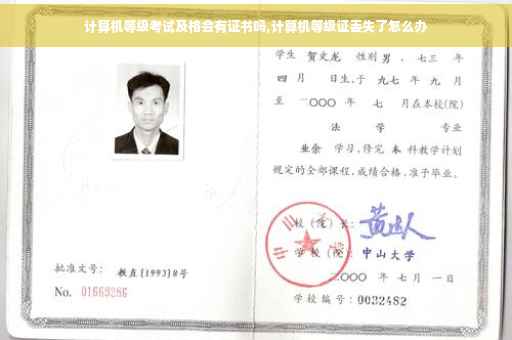 计算机等级考试及格会有证书吗,计算机等级证丢失了怎么办
学生 贺文龙 性别 男 、七三 年
四 月 日生,于 九七 年 九 月
至 二〇〇〇 年 七 月在本校(院)
法 学 专业
业余 学习,修完 本 科教学计划
规定的全部课程,成绩合格,准予毕业。
校(院)长:
学校(院): 中山大学
批准文号: 教直[1993]8号
二〇〇〇 年 七 月 一 日
No. 01669286
学校编号: 0032482